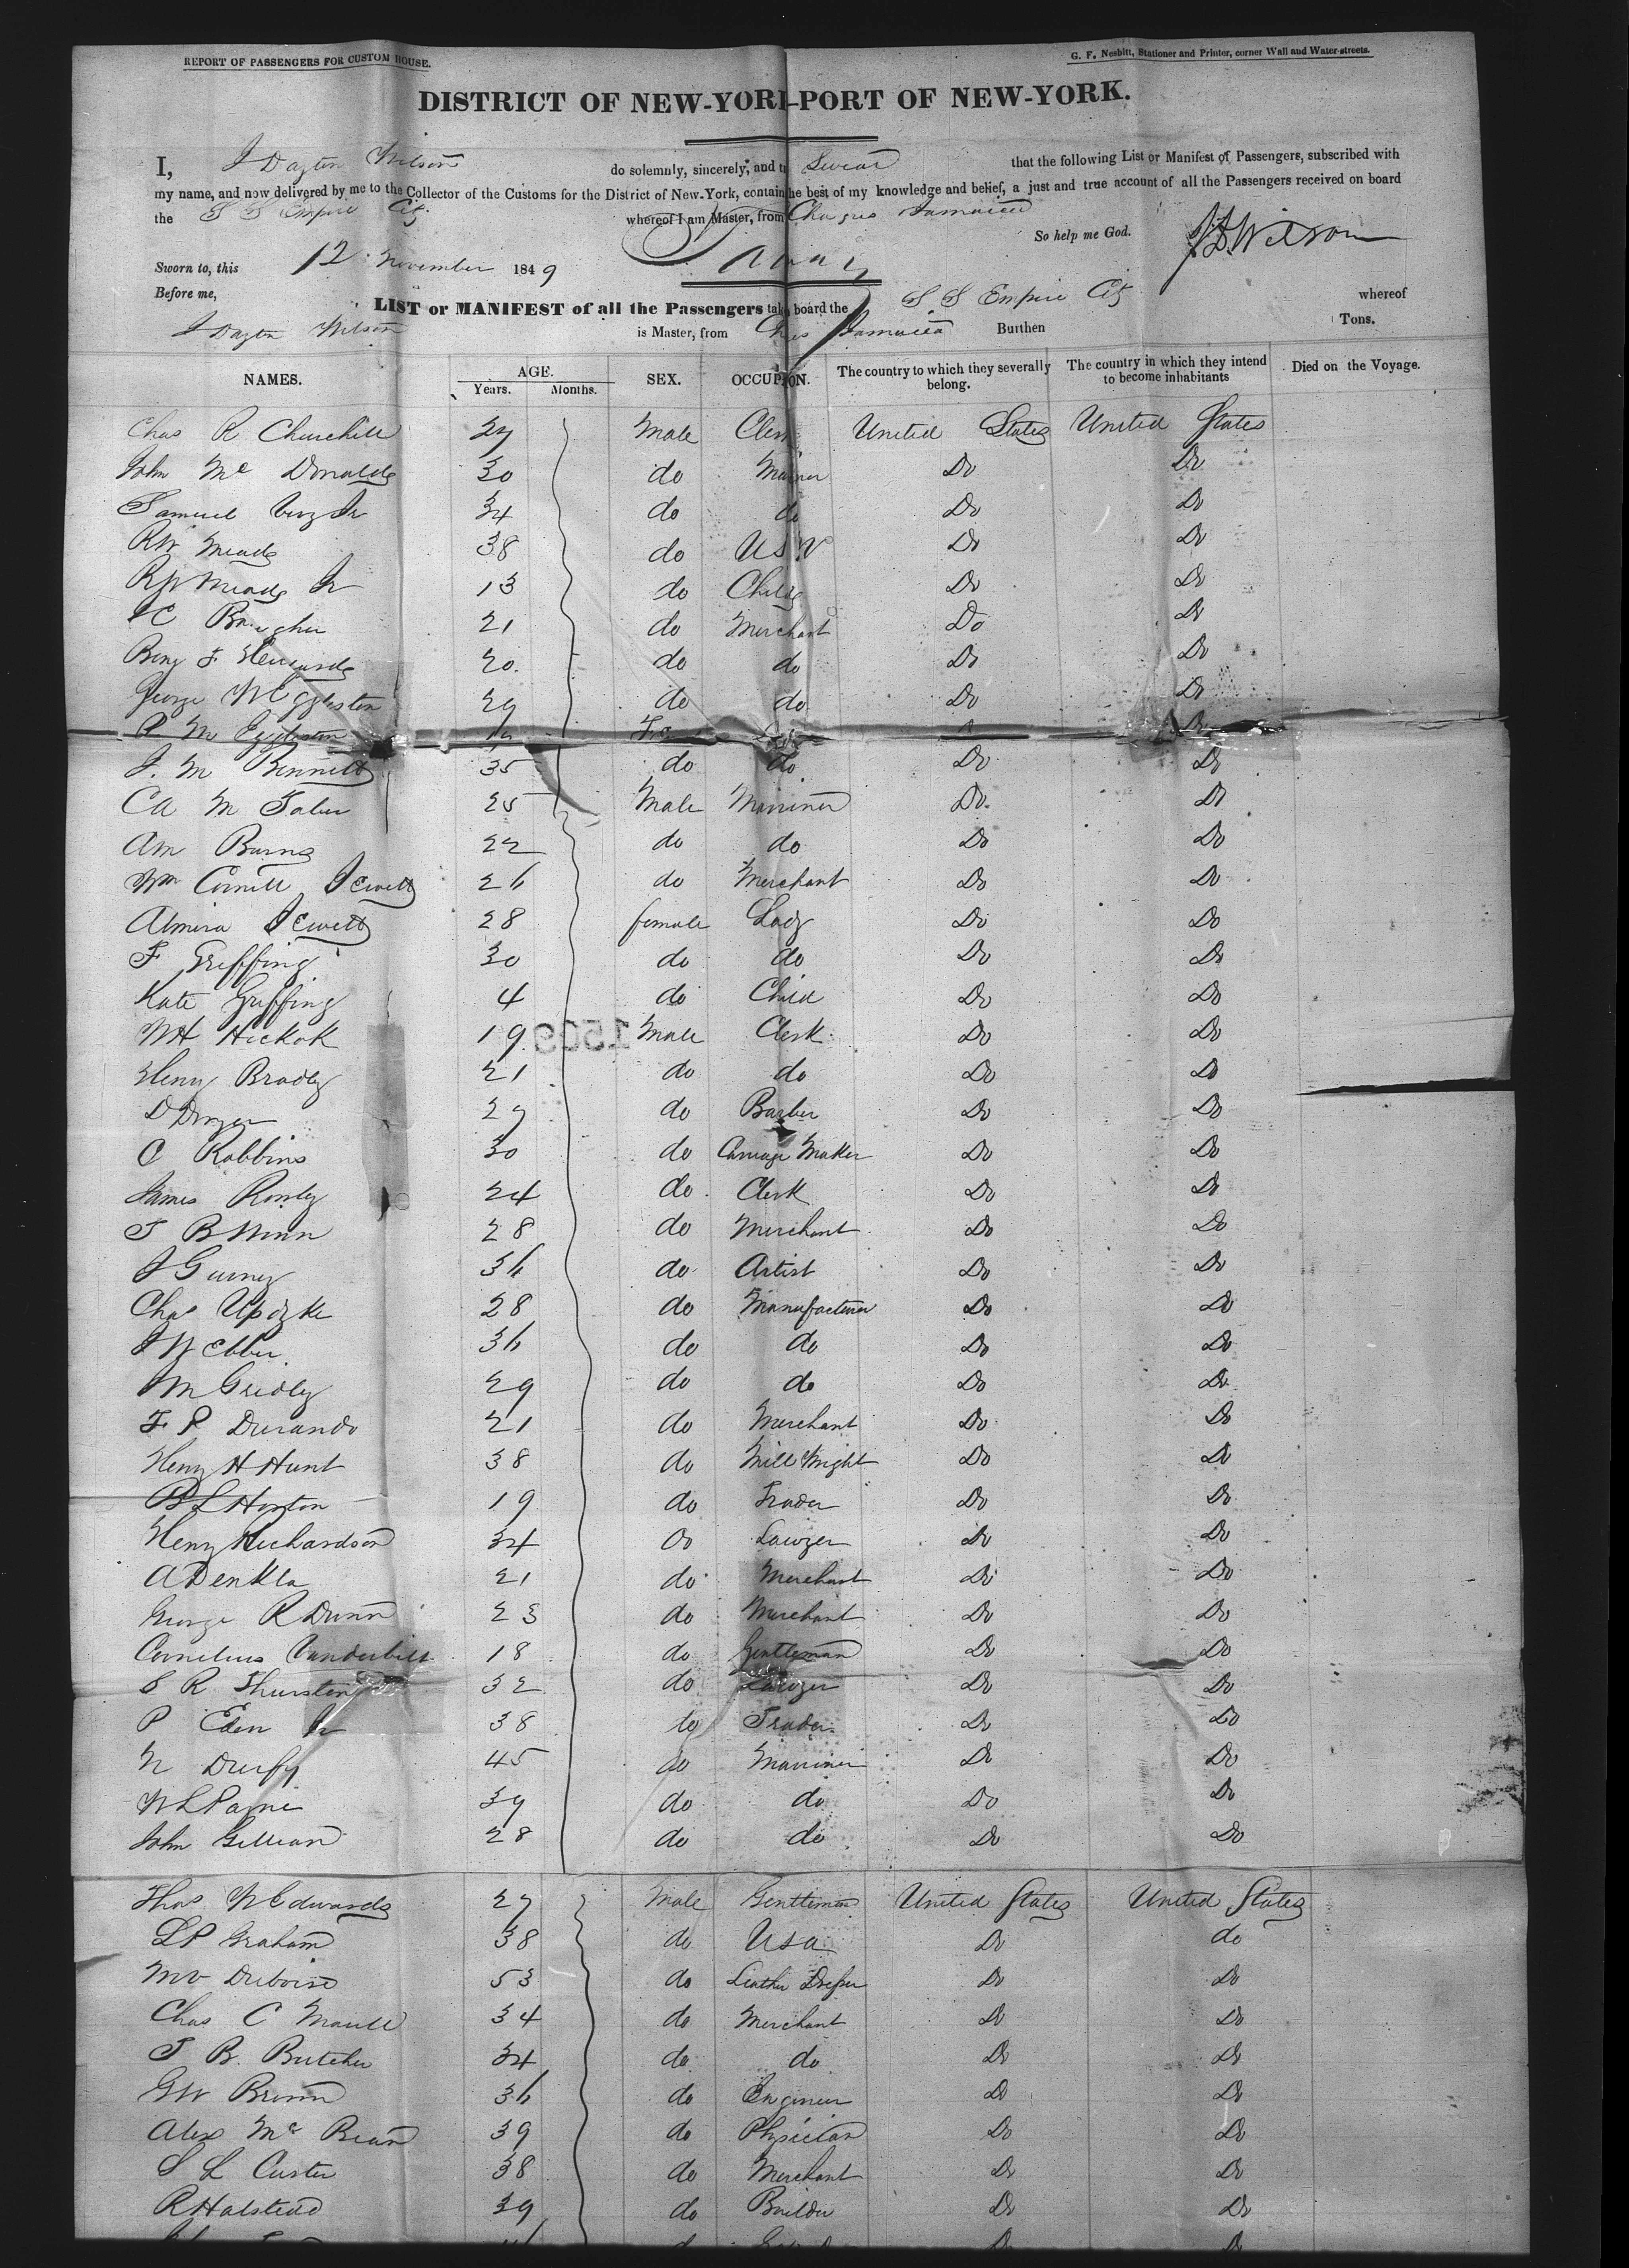 REPORT OF PASSENGERS FOR CUSTOM HOUSE.
G. F. Nesbitt, Stationer and Printer, corner Wall and Water-streets.
DISTRICT OF NEW-YORK-PORT OF NEW-YORK.
I, J Dayton Wilson do solemnly, sincerely, and t Swear that the following List or Manifest of Passengers, subscribed with
my name, and now delivered by me to the Collector of the Customs for the District of New-York, contain he best of my knowledge and belief, a just and true account of all the Passengers received on board
the S S Empire City whereof I am Master, from Chagres Jamaica
So help me God. J D Wilson
Sworn to, this 12 November 1849
Before me,
LIST or MANIFEST of all the Passengers tak board the S S Empire City whereof
J Dayton Wilson is Master, from Jamaica Burthen Tons.
NAMES. AGE. SEX. OCCUP ON. The country to which they severally belong. The country in which they intend to become inhabitants Died on the Voyage.
Years. Months.
Chas R Churchill 27 Male Clerk United States United States
John Mc Donald 30 do Mariner Do Do
Samuel 34 do do Do Do
RW Meade 38 do USN Do Do
RW Meade Jr 13 do Child Do Do
C 21 do Merchant Do Do
Benj F 20 do do Do Do
George W Eggleston 29 do do Do Do
P M Eggleston Do
J. M Bennett 35 do do Do Do
CA M Taber 25 Male Marriner Do Do
Am Burns 22 do do Do Do
Wm Cornell Jewett 26 do Merchant Do Do
Almira Jewett 28 female Lady Do Do
F Griffing 30 do do Do Do
Kate Griffing 4 do Child Do Do
WH Hickok 19 Male Clerk Do Do
Henry Bradley 21 do do Do Do
D Dwyer 29 do Barber Do Do
C Robbins 30 do Carriage Maker Do Do
James Rowley 24 do Clerk Do Do
T B Winn 28 do Merchant Do Do
J Gurney 36 do Artist Do Do
Chas Updyke 28 do Manufacturer Do Do
J Webber 36 do do Do Do
M Gridley 29 do do Do Do
F P Durando 21 do Merchant Do Do
Henry H Hunt 38 do Mill Wright Do Do
B L Horton 19 do Trader Do Do
Henry Richardson 34 do Lawyer Do Do
A Denkla 21 do Merchant Do Do
George R Dunn 23 do Merchant Do Do
Cornelius Vanderbilt 18 do Gentleman Do Do
S R Thurston 32 do Lawyer Do Do
P Eden Jr 38 do Trader Do Do
N Durfy 45 do Marriner Do Do
W L Paine 39 do do Do Do
John Gillian 28 do do Do Do
Thos W Edwards 27 Male Gentleman United States United States
L P Graham 38 do USA Do do
M V Duboise 53 do Leather Dresser Do Do
Chas C Maule 34 do Merchant Do Do
T B. Butcher 34 do do Do Do
GW Brown 36 do Engineer Do Do
Alex Mc Bean 39 do Physician Do Do
S L Custer 38 do Merchant Do Do
R Halstead 39 do Builder Do Do